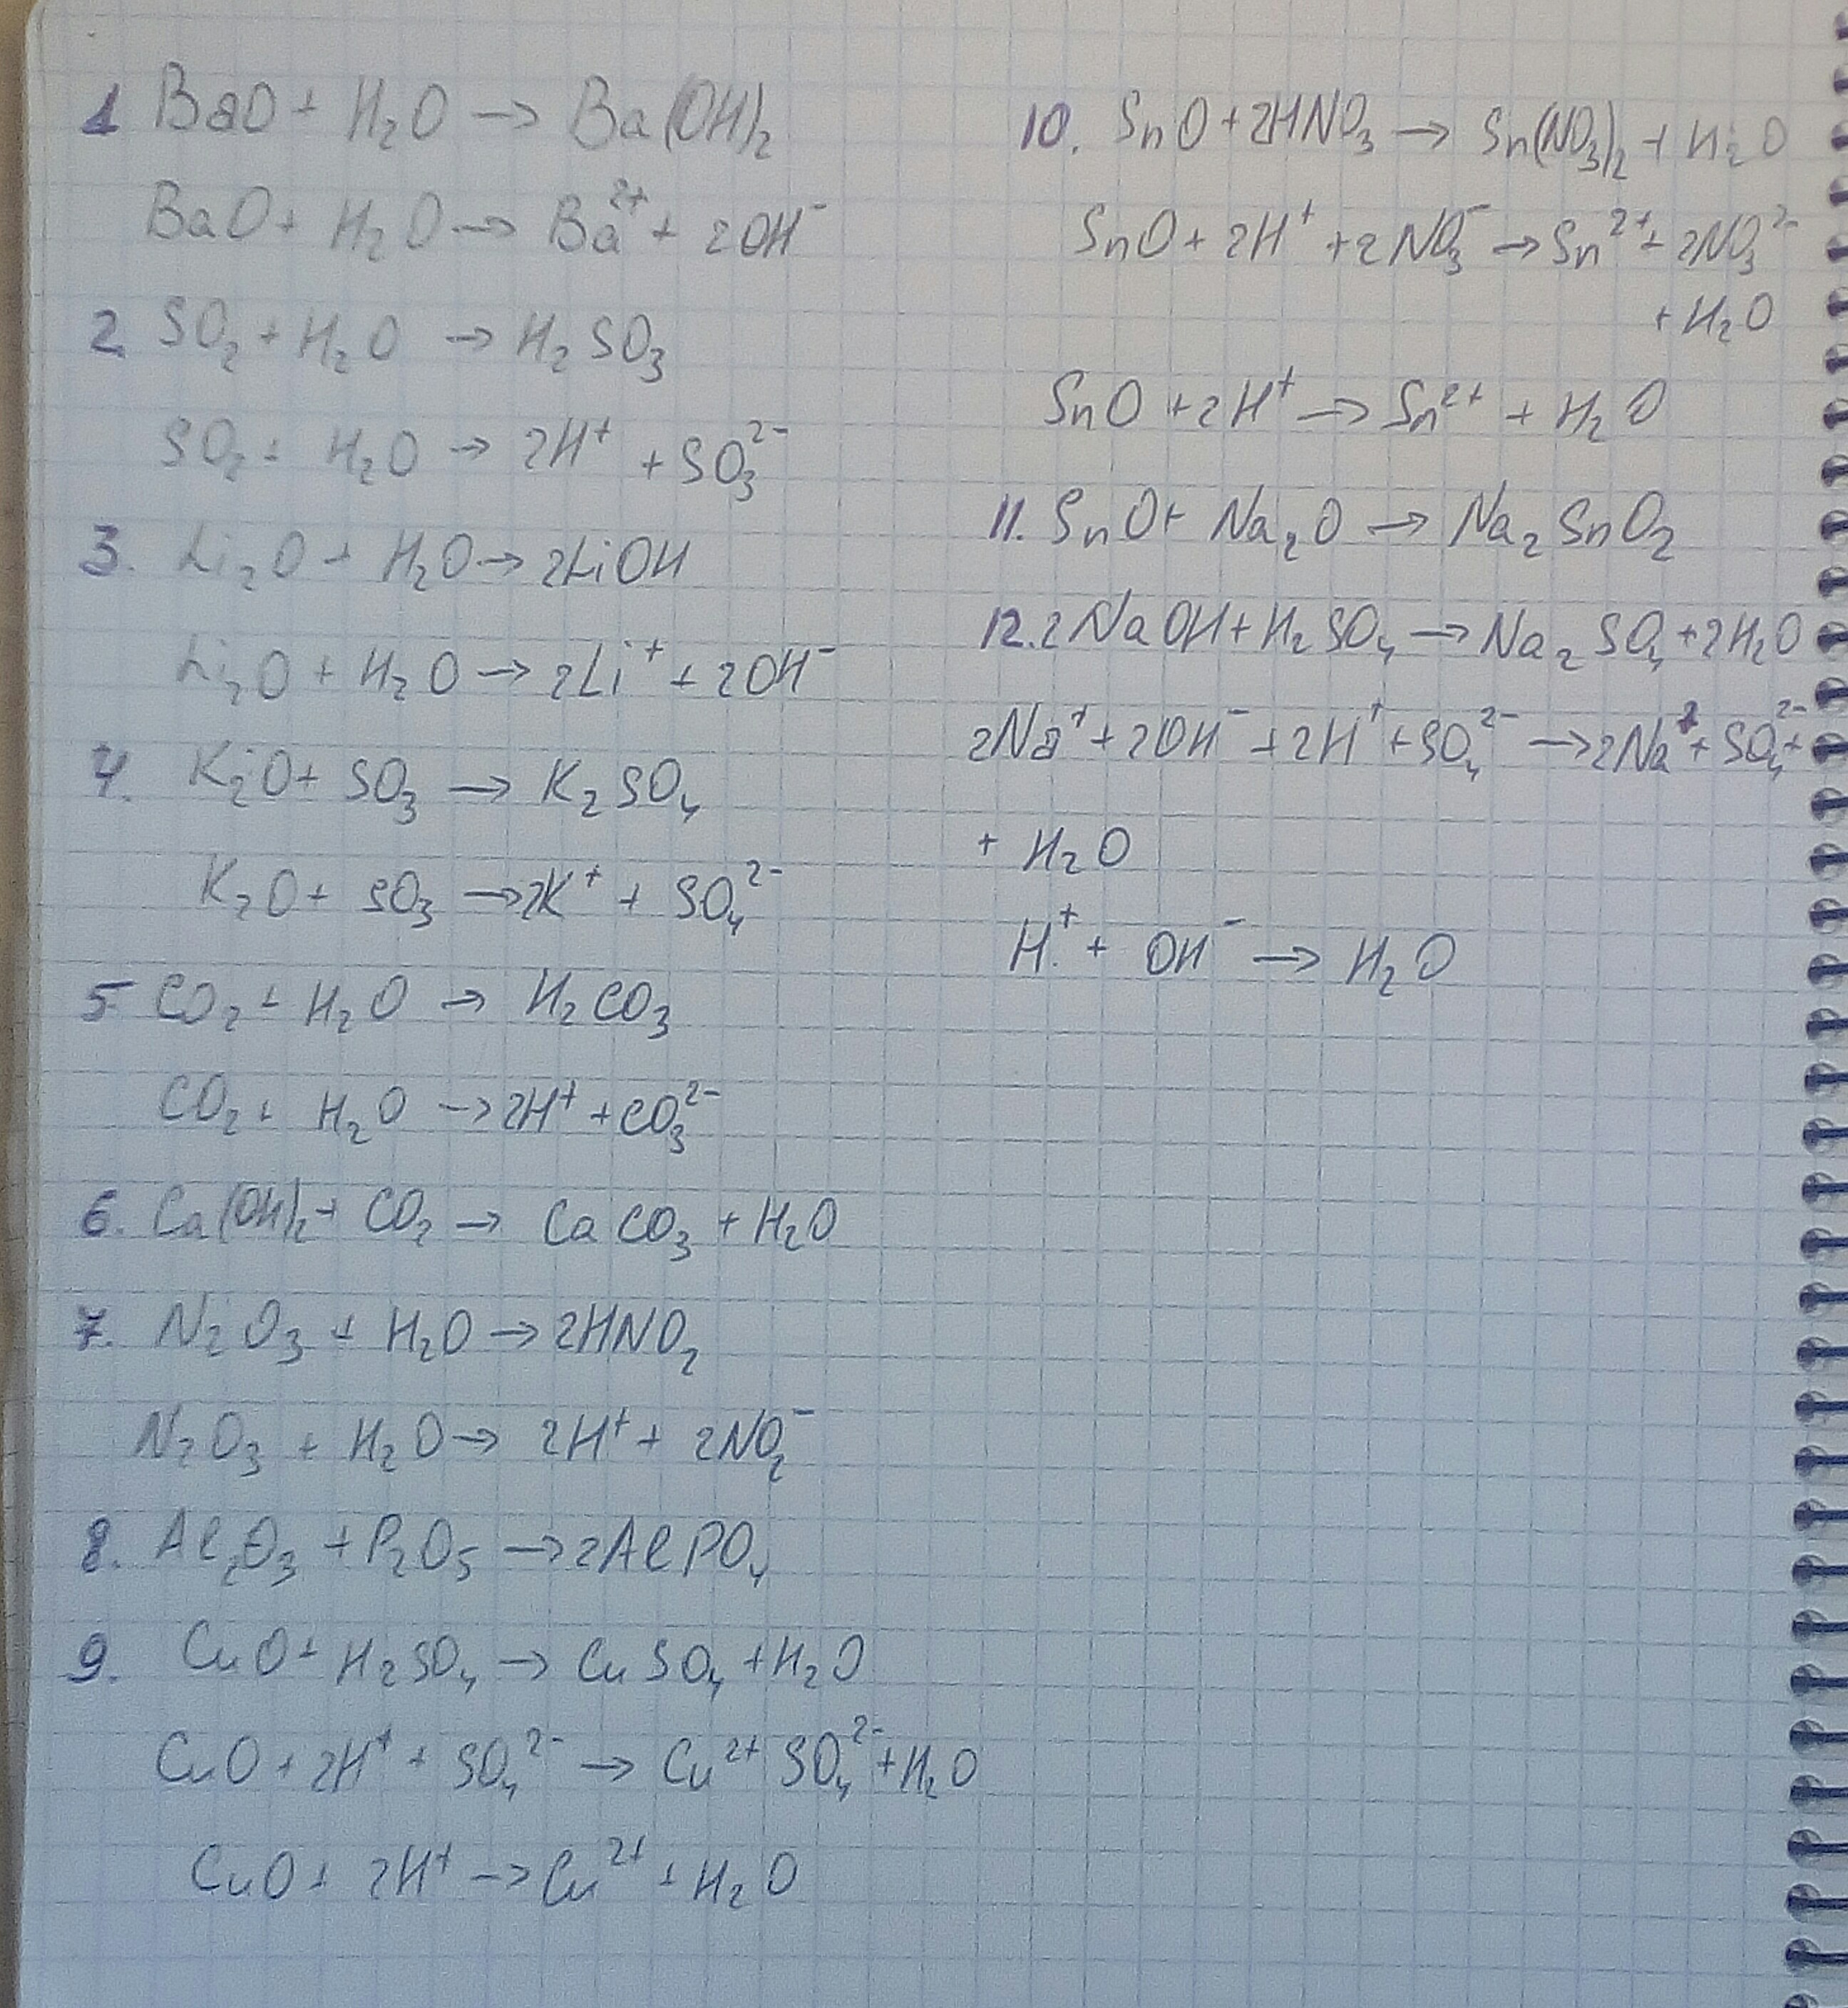 1 BaO + H₂O → Ba(OH)₂
BaO + H₂O → Ba²⁺ + 2OH⁻
2 SO₂ + H₂O → H₂SO₃
SO₂ + H₂O → 2H⁺ + SO₃²⁻
3. Li₂O + H₂O → 2LiOH
Li₂O + H₂O → 2Li⁺ + 2OH⁻
4. K₂O + SO₃ → K₂SO₄
K₂O + SO₃ → 2K⁺ + SO₄²⁻
5 CO₂ + H₂O → H₂CO₃
CO₂ + H₂O → 2H⁺ + CO₃²⁻
6. Ca(OH)₂ + CO₂ → CaCO₃ + H₂O
7. N₂O₃ + H₂O → 2HNO₂
N₂O₃ + H₂O → 2H⁺ + 2NO₂⁻
8. Al₂O₃ + P₂O₅ → 2AlPO₄
9. CuO + H₂SO₄ → CuSO₄ + H₂O
CuO + 2H⁺ + SO₄²⁻ → Cu²⁺ SO₄²⁻ + H₂O
CuO + 2H⁺ → Cu²⁺ + H₂O
10. SnO + 2HNO₃ → Sn(NO₃)₂ + H₂O
SnO + 2H⁺ + 2NO₃⁻ → Sn²⁺ + 2NO₃²⁻
+ H₂O
SnO + 2H⁺ → Sn²⁺ + H₂O
11. SnO + Na₂O → Na₂SnO₂
12. 2NaOH + H₂SO₄ → Na₂SO₄ + 2H₂O
2Na⁺ + 2OH⁻ + 2H⁺ + SO₄²⁻ → 2Na⁺ + SO₄²⁻ +
+ H₂O
H⁺ + OH⁻ → H₂O